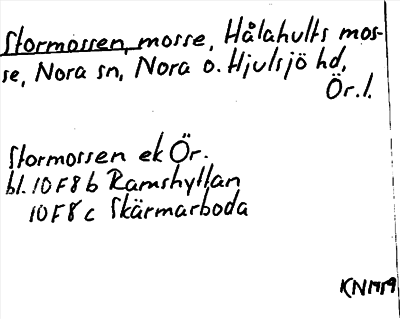 Stormossen, mosse, Hålahults mos-
se, Nora sn, Nora o. Hjulsjö hd,
Ör. l.
Stormossen ek Ör.
bl. 10 F 8 b Ramshyttan
10 F 8 c Skärmarboda